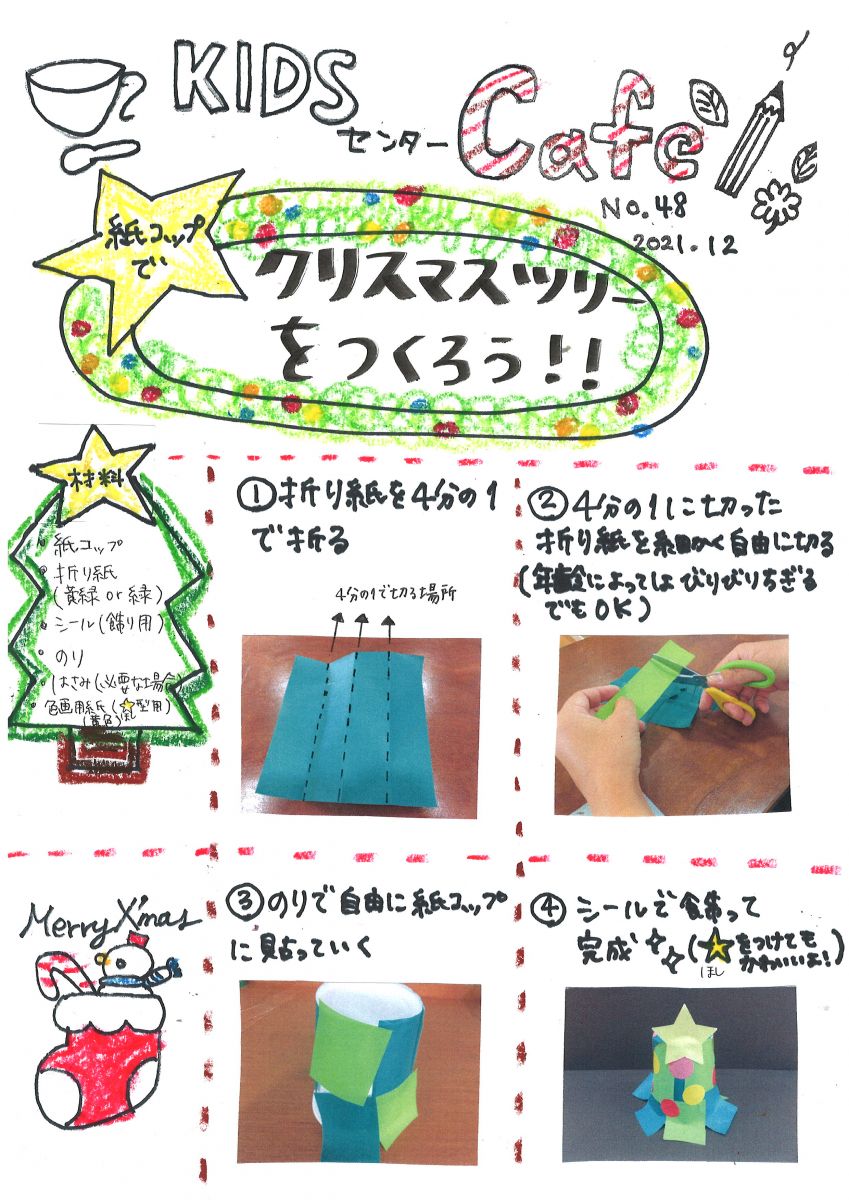 KIDS
センター Cafe
No.48
2021.12
紙コップ
で
クリスマスツリー
をつくろう!!
材料
・紙コップ
・折り紙
(黄緑 or 緑)
・シール(飾り用)
・のり
・はさみ(必要な場合)
・色画用紙(☆型用)
ほし
(黄色)
①折り紙を4分の1
で折る
4分の1で切る場所
②4分の1に切った
折り紙を細かく自由に切る
(年齢によってはびりびりちぎる
でもOK)
Merry X'mas
③のりで自由に紙コップ
に貼っていく
④シールで飾って
完成(☆をつけても
ほし
かわいいよ!)